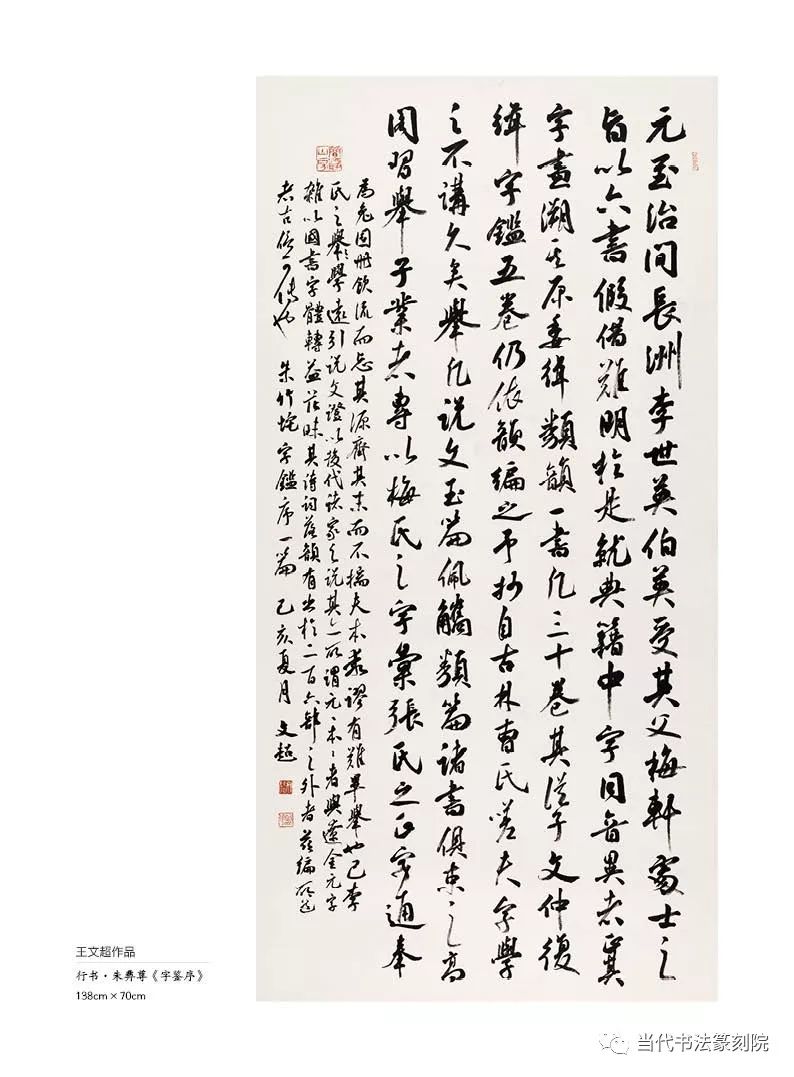 元至治间長洲李世英伯英受其父梅軒處士之
旨以六書假借難明於是就典籍中字同音異者正其
字畫溯其原委緝類韻一書凡三十卷其從子文仲復
緝字鑑五卷仍依韻編之予抄自古林曹氏嗟夫字學
之不講久矣舉凡説文玉篇佩觿類篇諸書俱束之高
閣習舉子業者專以梅氏之字彙張氏之正字通奉
為兔園冊飲流而忘其源齊其末而不揣夫本乖謬有難畢舉也已李
氏之學遠引説文證以後代諸家之説其所謂元〻本〻者與遼金元字
雜以國書字體轉益茫昧其诗詞落韻有出於二百六部之外者茲編所述
考古信可傳也 朱竹垞字鑑序一篇 己亥夏月 文超
王文超作品
行书·朱彝尊《字鉴序》
138cm×70cm
当代书法篆刻院